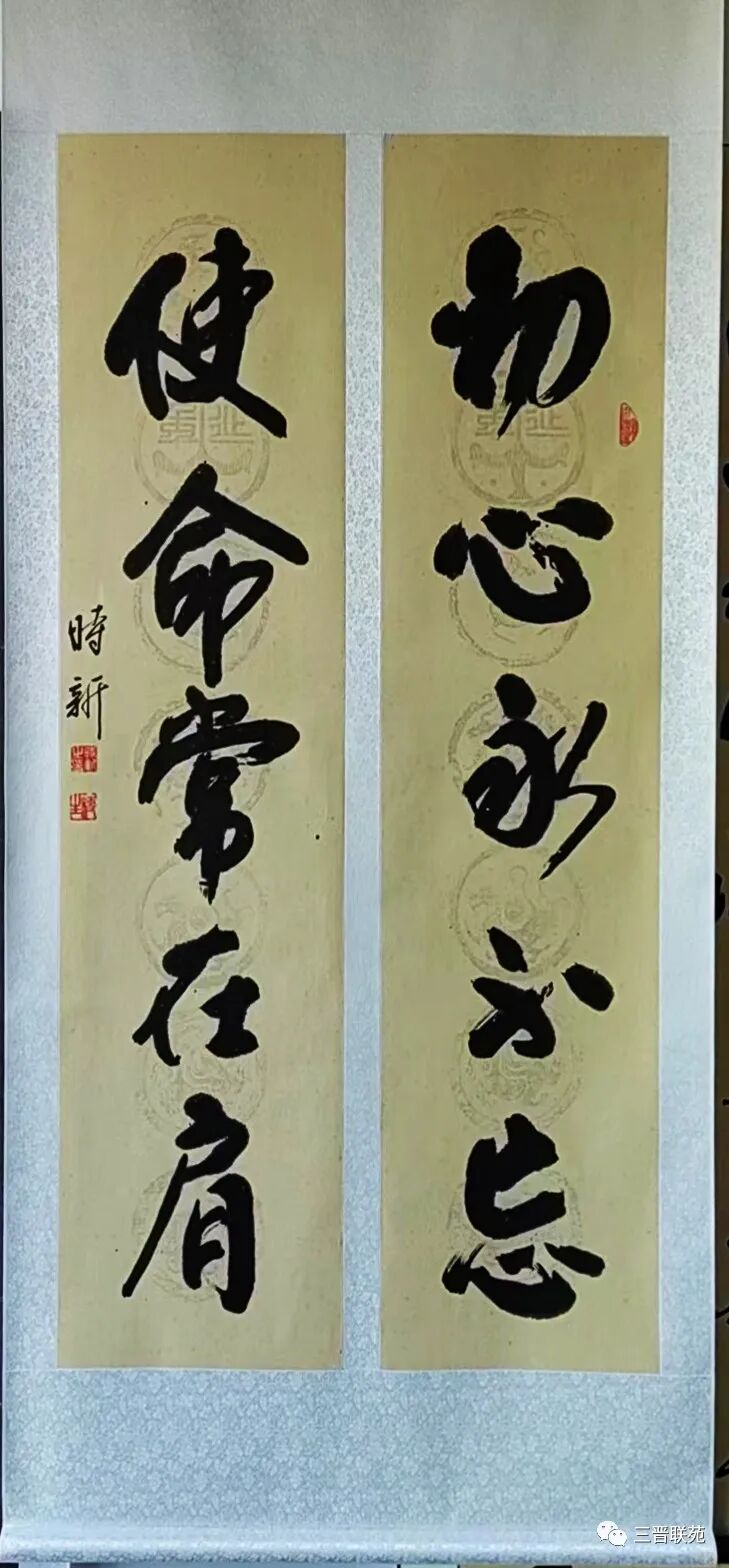 初心永不忘
使命常在肩
時新
三晋联苑